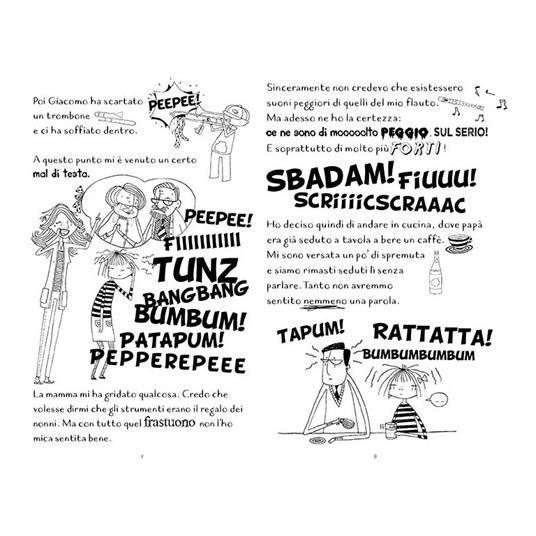 Poi Giacomo ha scartato
un trombone
e ci ha soffiato dentro.
PEEPEE!
A questo punto mi è venuto un certo
mal di testa.
PEEPEE!
FIIIIIIIIIIII
TUNZ
BANGBANG
BUMBUM!
PATAPUM!
PEPPEREPEEE
La mamma mi ha gridato qualcosa. Credo che
volesse dirmi che gli strumenti erano il regalo dei
nonni. Ma con tutto quel frastuono non l'ho
mica sentita bene.
Sinceramente non credevo che esistessero
suoni peggiori di quelli del mio flauto.
Ma adesso ne ho la certezza:
ce ne sono di mooooolto PEGGIO. SUL SERIO!
E soprattutto di molto più FORTI!
SBADAM! FiUUU!
SCRiiiiCSCRAAAC
Ho deciso quindi di andare in cucina, dove papà
era già seduto a tavola a bere un caffè.
Mi sono versata un po' di spremuta
e siamo rimasti seduti lì senza
parlare. Tanto non avremmo
sentito nemmeno una parola.
TAPUM!
RATTATTA!
BUMBUMBUMBUM